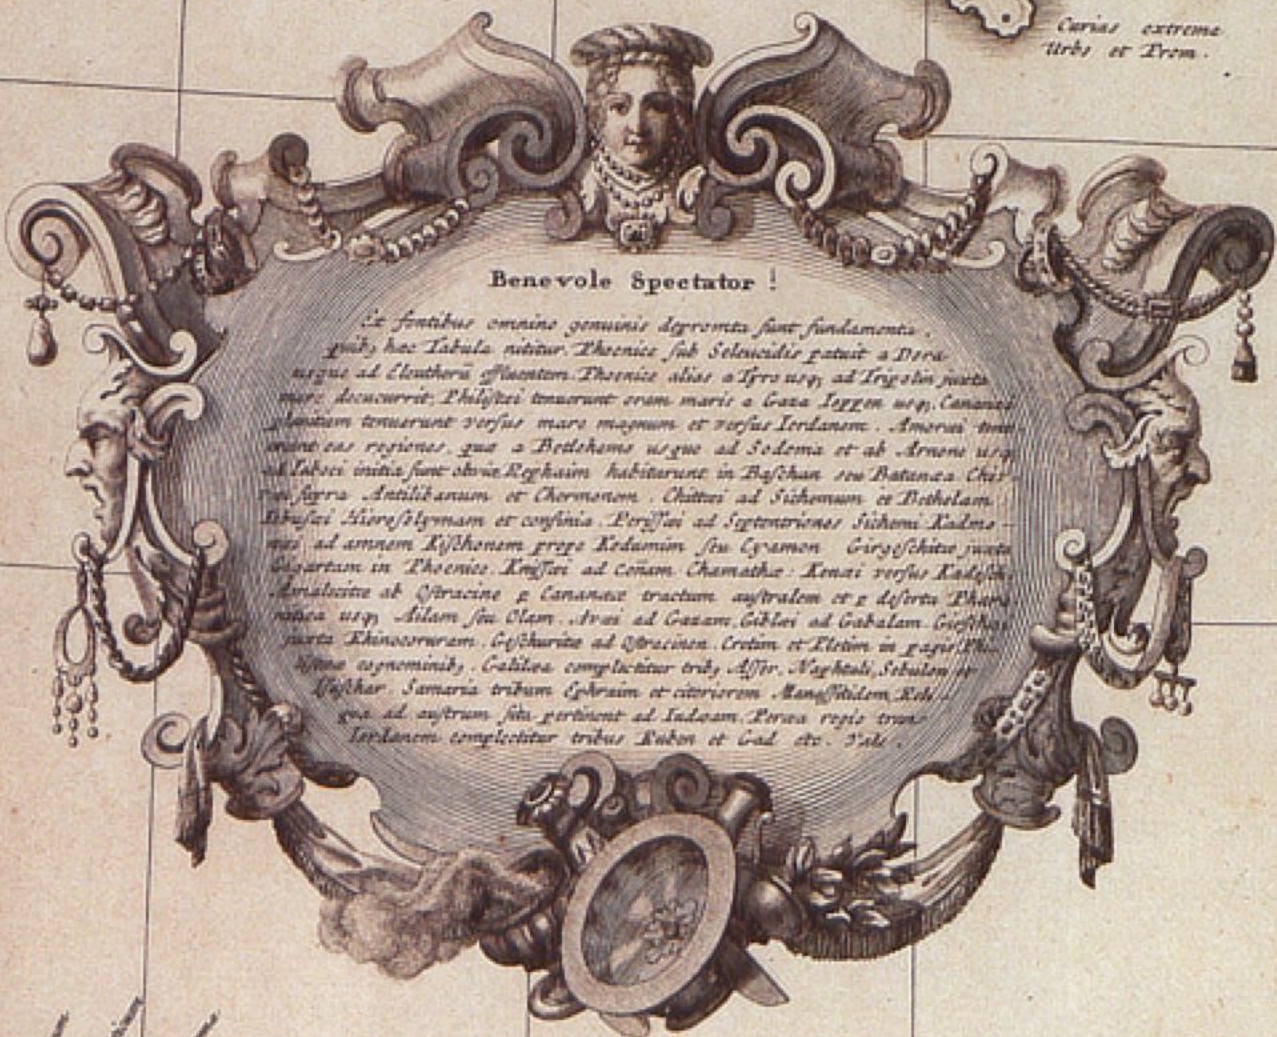 Curias extrema
Urbs et Prom.
Benevole Spectator!
Ex fontibus omnino genuinis depromta sunt fundamenta,
quib, hæc Tabula nititur. Phoenice sub Seleucidis patuit a Dora
usque ad Eleutherū effluentem. Phoenice alias a Tyro usq, ad Tripolin juxta
mare decucurrit. Philistæi tenuerunt oram maris a Gaza Ioppen usq, Cananæi
planitiem tenuerunt versus mare magnum et versus Iordanem. Amoræi tenu
erunt eas regiones, quæ a Betlehemo usque ad Sodoma et ab Arnone usq,
ad Iaboci initia sunt obviæ. Rephaim habitarunt in Baschan seu Batanæa Chiv-
væi supra Antilibanum et Chermonem. Chittæi ad Sichemum et Bethelam
Iebusæi Hierosolymam et confinia. Perissæi ad Septentriones Sichemi Kadmo-
næi ad amnem Kischonem prope Kedumim seu Cyamon Girgeschitæ juxta
Gigartam in Phoenice. Knissæi ad Cœnam Chamathæ: Kenæi versus Kadesch.
Amalecitæ ab Ostracine p Cananææ tractum australem et p deserta Phara
nitica usq, Ailam seu Olam. Avæi ad Gazam, Giblei ad Gabalam. Girschæi
juxta Rhinocoruram. Geschuritæ ad Ostracinen. Cretim et Pletim in pagis Phi-
listææ cognominib,. Galilæa complectitur trib, Asser, Naphtali, Sebulon et
Isaschar. Samaria tribum Ephraim et citeriorem Manassitidem, Reli-
qua ad austrum sita pertinent ad Iudæam. Peræa regio trans
Iordanem complectitur tribus Ruben et Gad etc. Vale.